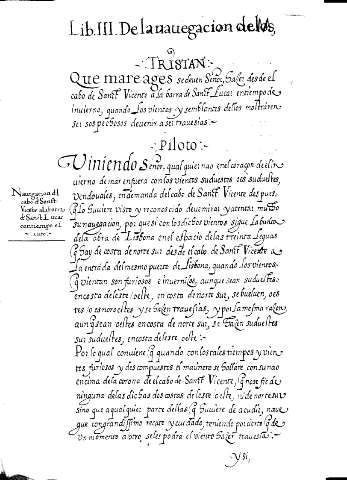 Lib. III. De la nauegacion de los,
·TRISTAN·
Que mareages se deuen Señor, hazer desde el
cabo de Sanct Vicente a la barra de Sanct Lucar en tiempo de
inuierno, quando los vientos y semblantes dellos mostraren
ser sospechosos de venir a ser trauesias.
·Piloto·
Viniendo Señor, qualquier nao en el coraçon del in
uierno de mar en fuera con los vientos suduestes
Vendouales, en demanda del cabo de Sanct Vicente despues
q̃ lo huuiere visto y reconoscido deue mirar y atentar mucho
su nauegacion, por que si con los dichos vientos sigue la
de la obra de Lisbona en el espacio de las treinta leguas
q̃ hay de costa de norte sur desde el cabo de Sanct Vicente a
la entrada del mesmo puerto de Lisbona, quando los vientos
q̃ vientan son furiosos e inuernisos, aunque sean suduestes
en costa de leste oeste, en costa de norte sur, se bueluen, oes
tes o esnoroestes y se hazen trauesias, y por la mesma razon
aunq̃ sean oestes en costa de norte sur, se hazen suduestes
sur suduestes, en costa de leste oeste:-
Por lo qual conuiene, q̃ quando con los tales tiempos y vien
tos furiosos y descompuestos el marinero se hallare con su nao
encima de la corona del cabo de Sanct Vicente, q̃ no se fie de
ninguna de las dichas dos costas de leste oeste, ni de norte sur
sino que a qualquier parte dellas q̃ huuiere de acudir, naue
gue con grandissimo recato y cuidado, teniendo por cierto q̃ de
vn momento a otro, se les podra el viento hazer trauesia:-
Y si,
Nauegacion del
cabo de Sanct
Vicente a la barra
de Sanct Lucar
con tiempo de